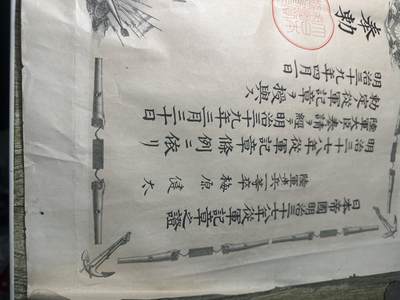 日本帝國明治三十七八年從軍記章之證
陸軍歩兵一等卒 梅原 健太
明治三十七八年從軍記章條例ニ依リ
陸軍大臣奏請ヲ經テ明治三十九年三月三十日
勅定ノ從軍記章ヲ授與ス
明治三十九年四月一日
奉勅